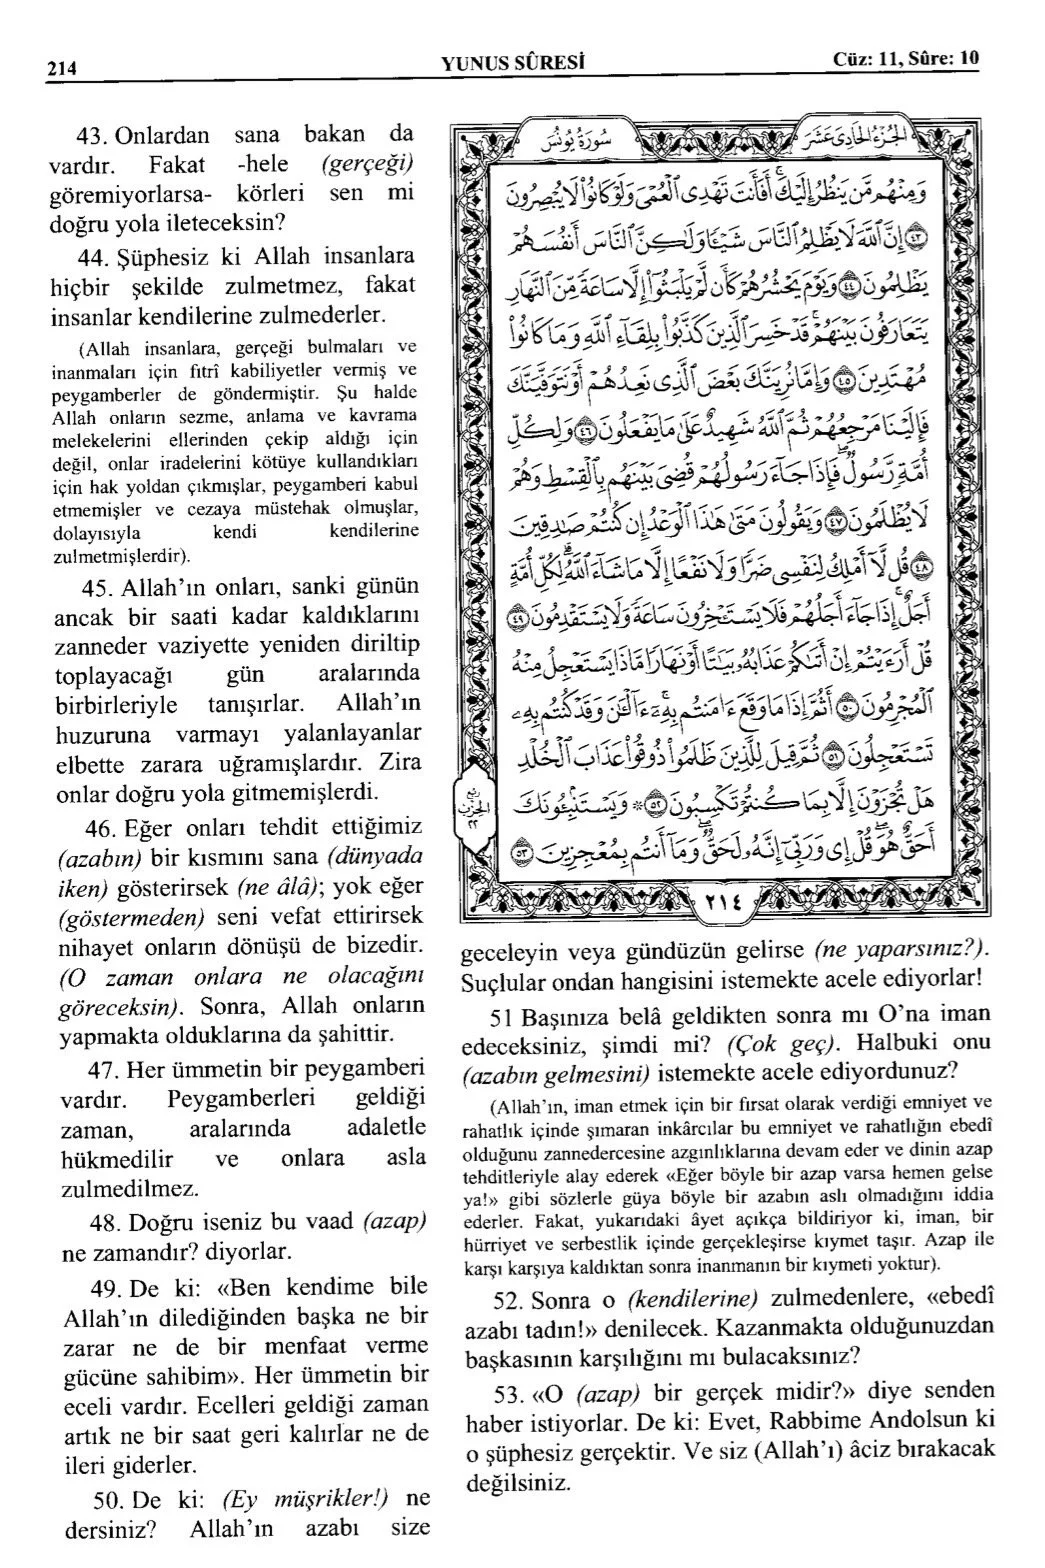 214
YUNUS SÛRESİ
Cüz: 11, Sûre: 10
43. Onlardan sana bakan da
vardır. Fakat -hele (gerçeği)
göremiyorlarsa- körleri sen mi
doğru yola ileteceksin?
44. Şüphesiz ki Allah insanlara
hiçbir şekilde zulmetmez, fakat
insanlar kendilerine zulmederler.
(Allah insanlara, gerçeği bulmaları ve
inanmaları için fıtrî kabiliyetler vermiş ve
peygamberler de göndermiştir. Şu halde
Allah onların sezme, anlama ve kavrama
melekelerini ellerinden çekip aldığı için
değil, onlar iradelerini kötüye kullandıkları
için hak yoldan çıkmışlar, peygamberi kabul
etmemişler ve cezaya müstehak olmuşlar,
dolayısıyla kendi kendilerine
zulmetmişlerdir).
45. Allah’ın onları, sanki günün
ancak bir saati kadar kaldıklarını
zanneder vaziyette yeniden diriltip
toplayacağı gün aralarında
birbirleriyle tanışırlar. Allah’ın
huzuruna varmayı yalanlayanlar
elbette zarara uğramışlardır. Zira
onlar doğru yola gitmemişlerdi.
46. Eğer onları tehdit ettiğimiz
(azabın) bir kısmını sana (dünyada
iken) gösterirsek (ne âlâ); yok eğer
(göstermeden) seni vefat ettirirsek
nihayet onların dönüşü de bizedir.
(O zaman onlara ne olacağını
göreceksin). Sonra, Allah onların
yapmakta olduklarına da şahittir.
47. Her ümmetin bir peygamberi
vardır. Peygamberleri geldiği
zaman, aralarında adaletle
hükmedilir ve onlara asla
zulmedilmez.
48. Doğru iseniz bu vaad (azap)
ne zamandır? diyorlar.
49. De ki: «Ben kendime bile
Allah’ın dilediğinden başka ne bir
zarar ne de bir menfaat verme
gücüne sahibim». Her ümmetin bir
eceli vardır. Ecelleri geldiği zaman
artık ne bir saat geri kalırlar ne de
ileri giderler.
50. De ki: (Ey müşrikler!) ne
dersiniz? Allah’ın azabı size
الجزء الحادي عشر
سورة يونس
وَمِنْهُم مَّن يَنظُرُ إِلَيْكَ أَفَأَنتَ تَهْدِي الْعُمْيَ وَلَوْ كَانُوا لَا يُبْصِرُونَ
﴿٤٣﴾ إِنَّ اللَّهَ لَا يَظْلِمُ النَّاسَ شَيْئًا وَلَٰكِنَّ النَّاسَ أَنفُسَهُمْ
يَظْلِمُونَ ﴿٤٤﴾ وَيَوْمَ يَحْشُرُهُمْ كَأَن لَّمْ يَلْبَثُوا إِلَّا سَاعَةً مِّنَ النَّهَارِ
يَتَعَارَفُونَ بَيْنَهُمْ قَدْ خَسِرَ الَّذِينَ كَذَّبُوا بِلِقَاءِ اللَّهِ وَمَا كَانُوا
مُهْتَدِينَ ﴿٤٥﴾ وَإِمَّا نُرِيَنَّكَ بَعْضَ الَّذِي نَعِدُهُمْ أَوْ نَتَوَفَّيَنَّكَ
فَإِلَيْنَا مَرْجِعُهُمْ ثُمَّ اللَّهُ شَهِيدٌ عَلَىٰ مَا يَفْعَلُونَ ﴿٤٦﴾ وَلِكُلِّ
أُمَّةٍ رَّسُولٌ فَإِذَا جَاءَ رَسُولُهُمْ قُضِيَ بَيْنَهُم بِالْقِسْطِ وَهُمْ
لَا يُظْلَمُونَ ﴿٤٧﴾ وَيَقُولُونَ مَتَىٰ هَٰذَا الْوَعْدُ إِن كُنتُمْ صَادِقِينَ
﴿٤٨﴾ قُل لَّا أَمْلِكُ لِنَفْسِي ضَرًّا وَلَا نَفْعًا إِلَّا مَا شَاءَ اللَّهُ لِكُلِّ أُمَّةٍ
أَجَلٌ إِذَا جَاءَ أَجَلُهُمْ فَلَا يَسْتَـْٔخِرُونَ سَاعَةً وَلَا يَسْتَقْدِمُونَ ﴿٤٩﴾
قُلْ أَرَءَيْتُمْ إِنْ أَتَاكُمْ عَذَابُهُ بَيَاتًا أَوْ نَهَارًا مَّاذَا يَسْتَعْجِلُ مِنْهُ
الْمُجْرِمُونَ ﴿٥٠﴾ أَثُمَّ إِذَا مَا وَقَعَ ءَامَنتُم بِهِ ءَآلْـَٰٔنَ وَقَدْ كُنتُم بِهِ
تَسْتَعْجِلُونَ ﴿٥١﴾ ثُمَّ قِيلَ لِلَّذِينَ ظَلَمُوا ذُوقُوا عَذَابَ الْخُلْدِ
هَلْ تُجْزَوْنَ إِلَّا بِمَا كُنتُمْ تَكْسِبُونَ ﴿٥٢﴾ * وَيَسْتَنۢبِـُٔونَكَ
أَحَقٌّ هُوَ قُلْ إِي وَرَبِّي إِنَّهُ لَحَقٌّ وَمَا أَنتُم بِمُعْجِزِينَ ﴿٥٣﴾
ربع
الحزب
٢٢
٢١٤
geceleyin veya gündüzün gelirse (ne yaparsınız?).
Suçlular ondan hangisini istemekte acele ediyorlar!
51 Başınıza belâ geldikten sonra mı O’na iman
edeceksiniz, şimdi mi? (Çok geç). Halbuki onu
(azabın gelmesini) istemekte acele ediyordunuz?
(Allah’ın, iman etmek için bir fırsat olarak verdiği emniyet ve
rahatlık içinde şımaran inkârcılar bu emniyet ve rahatlığın ebedî
olduğunu zannedercesine azgınlıklarına devam eder ve dinin azap
tehditleriyle alay ederek «Eğer böyle bir azap varsa hemen gelse
ya!» gibi sözlerle güya böyle bir azabın aslı olmadığını iddia
ederler. Fakat, yukarıdaki âyet açıkça bildiriyor ki, iman, bir
hürriyet ve serbestlik içinde gerçekleşirse kıymet taşır. Azap ile
karşı karşıya kaldıktan sonra inanmanın bir kıymeti yoktur).
52. Sonra o (kendilerine) zulmedenlere, «ebedî
azabı tadın!» denilecek. Kazanmakta olduğunuzdan
başkasının karşılığını mı bulacaksınız?
53. «O (azap) bir gerçek midir?» diye senden
haber istiyorlar. De ki: Evet, Rabbime Andolsun ki
o şüphesiz gerçektir. Ve siz (Allah’ı) âciz bırakacak
değilsiniz.